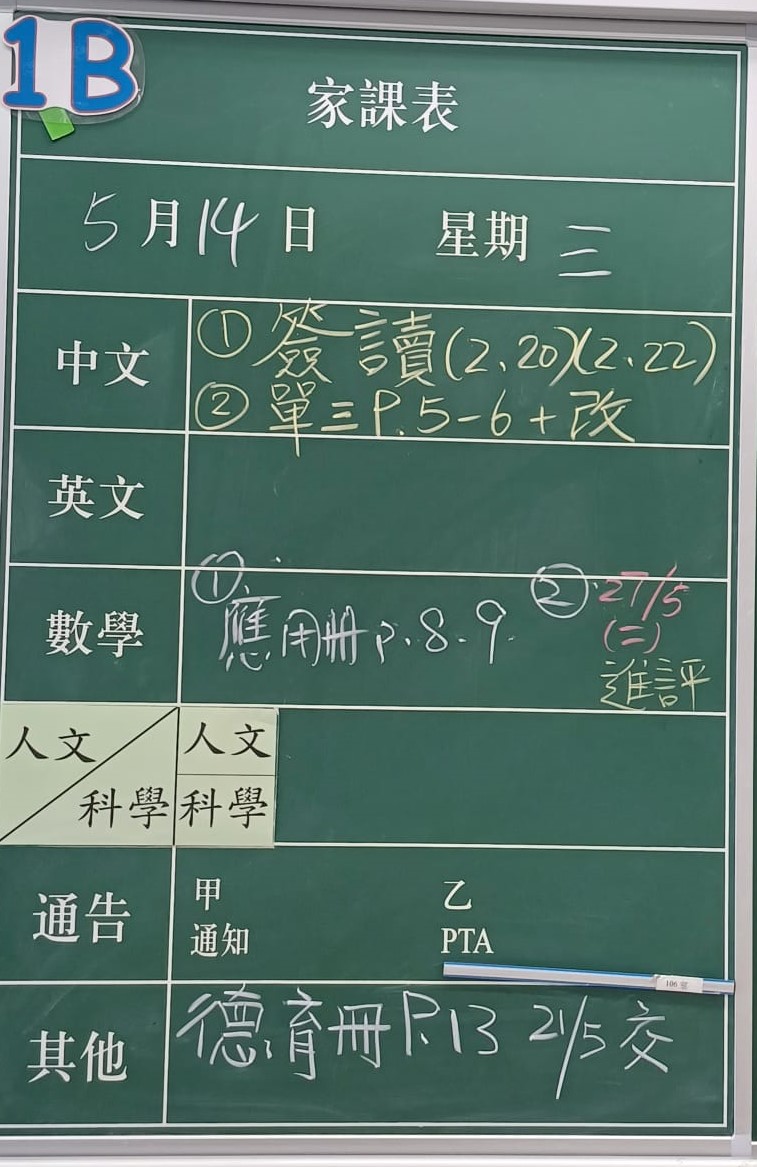 1B
家課表
5月14日 星期三
中文
① 簽讀(2、20)(2、22)
② 單三P.5-6+改
英文
數學
① 應用冊p.8-9
② 27/5
(二)
進評
人文
科學
人文
科學
通告
甲
通知
乙
PTA
其他
德育冊P.13 21/5交